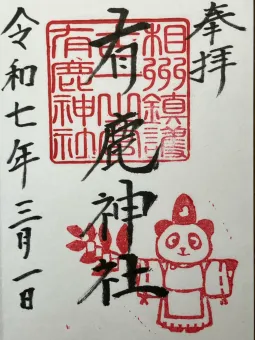 奉拝
相州鎮護
有鹿神社
有鹿神社
令和七年三月一日